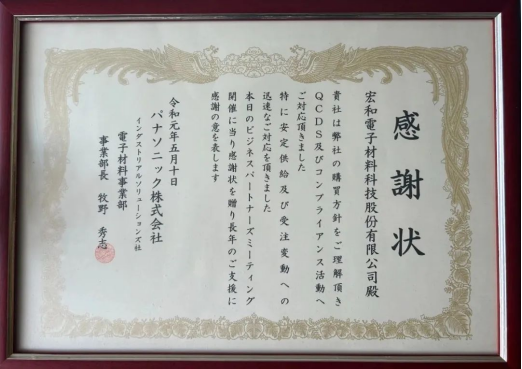 感謝状
宏和電子材料科技股份有限公司殿
貴社は弊社の購買方針をご理解頂き
QCDS及びコンプライアンス活動へ
ご対応頂きました
特に安定供給及び受注変動への
迅速なご対応を頂きました
本日のビジネスパートナーズミーティング
開催に当り感謝状を贈り長年のご支援に
感謝の意を表します
令和元年五月十日
パナソニック株式会社
インダストリアルソリューションズ社
電子材料事業部
事業部長 牧野 秀志